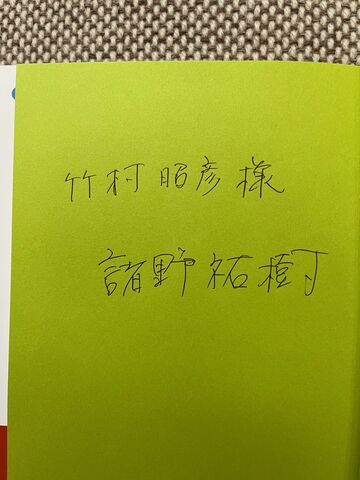 竹村昭彦様
諸野祐樹